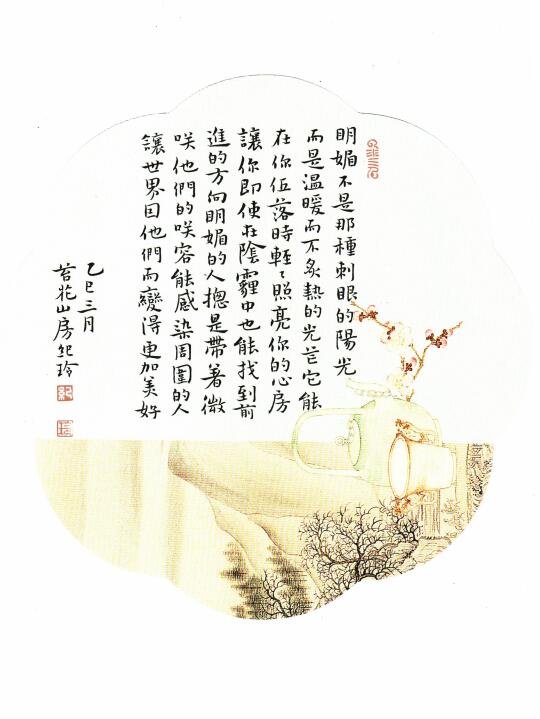 明媚不是那種刺眼的陽光
而是溫暖而不炙熱的光芒它能
在你低落時輕〻照亮你的心房
讓你即使在陰霾中也能找到前
進的方向明媚的人摠是帶著微
咲他們的咲容能感染周圍的人
讓世界因他們而變得更加美好
乙巳三月
苔花山房紀玲
紀
玲